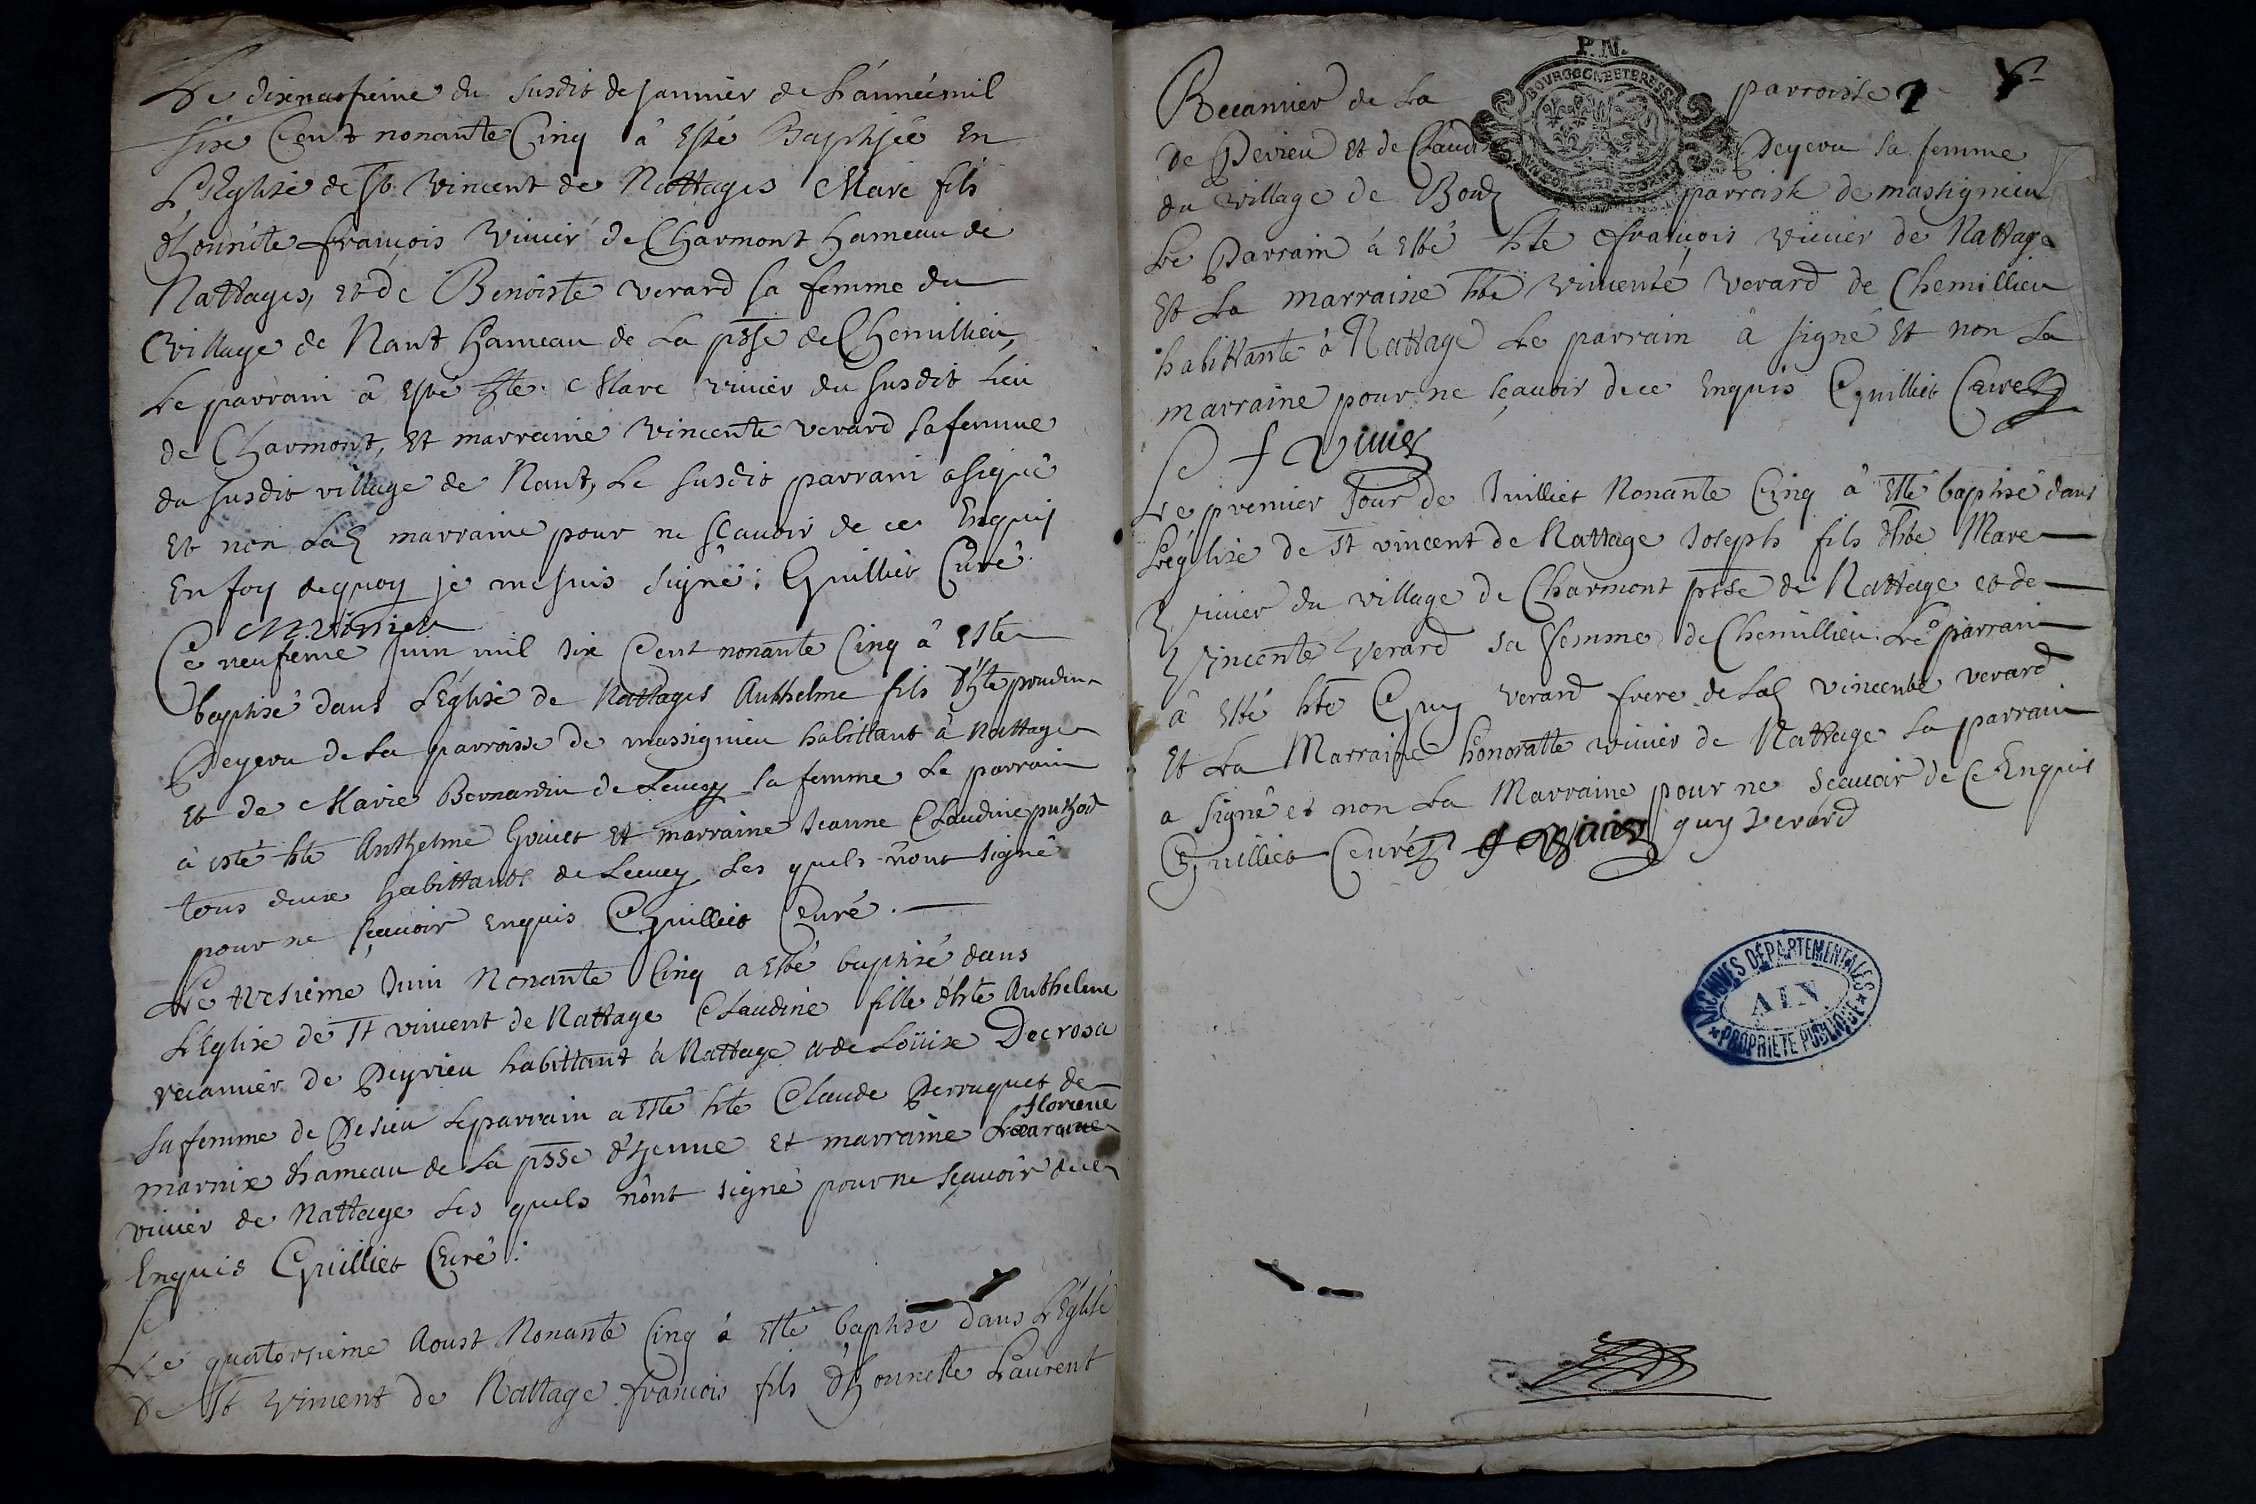 Le dixneufieme du susdit de Janvier de L'année mil
six Cent nonante Cinq â esté Baptisée En
L'Eglise de St Vincent de Nattages Marc fils
d'honnéte françois Vivier de Charmont hameau de
Nattages, et de Benoiste verard sa femme du
village de Nant hameau de La psse de Chemillieu,
Le parrain â esté hte Marc vivier du susdit Lieu
de Charmont, et marraine Vincente verard sa femme
du susdit village de Nant, Le susdit parrain a signé
et non Lad marraine pour ne scavoir de ce Enquis
En foy dequoy je me suis signé: Guilliet Curé
M Vivier
Ce neufieme Juin mil six Cent nonante Cinq â esté
baptisé dans L'Eglise de Nattages Anthelme fils d'hte
Peyeru de La parroisse de massignieu habittant â Nattage
et de Marie Bernardin de Leucey sa femme Le parrain
â esté hte Anthelme Goivet et marraine Jeanne Claudine
tous deux habittants de Leucey Les quels n'ont signé
pour ne scavoir Enquis Guilliet Curé.
Le tresieme Juin Nonante Cinq a esté baptisé dans
L'Eglise de St vincent de Nattage Claudine fille d'hte Anthelme
recamier de Peyrieu habittant à Nattage et de Loüise Decrosa
sa femme de Pesieu Le parrain a esté hte Claude Perruquet de
marnix hameau de La psse d'yenne et marraine florienne
vivier de Nattage Les quels n'ont signé pour ne scavoir de ce
Enquis Guilliet Curé:
Le
Le quatorsieme Aoust Nonante Cinq â esté baptisé dans L'Eglise
de St Vincent de Nattage françois fils d'honneste Laurent
P. N.
BOURGOGNE ET BRESSE
Recamier de La parroisse
de Peirieu et de Claudi Peyeru sa femme
du village de parroisse de massignieu
Le Parrain â esté hte françois vivier de Nattage
et La marraine hte vincente verard de Chemillieu
habittante â Nattage Le parrain â signé et non La
marraine pour ne sçavoir de ce Enquis Guilliet Curé
Le f Vivier
Le premier Jour de Juilliet Nonante Cinq â esté baptisé dans
L'église de St vincent de Nattage Joseph fils d'hte Marc
Vivier du village de Charmont psse de Nattage et de
Vincente Verard sa femme de Chemillieu Le parrain
â esté hte Guy verard frere de Lad vincente verard
et La Marraine honoratte vivier de Nattage La parrain
a signé et non La Marraine pour ne scavoir de ce Enquis
Guilliet Curé f Vivier guy Verard
ARCHIVES DÉPARTEMENTALES
AIN
PROPRIÉTÉ PUBLIQUE